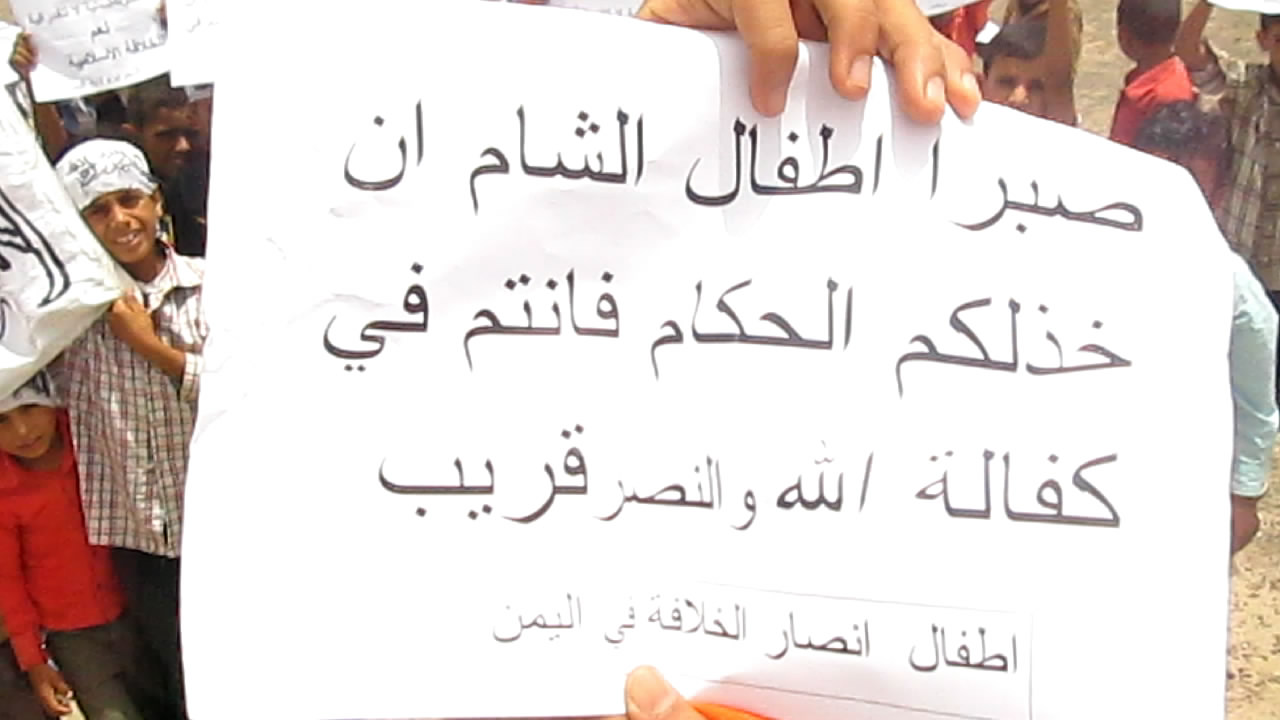 صبرا اطفال الشام ان
خذلكم الحكام فانتم في
كفالة الله والنصر قريب
اطفال انصار الخلافة في اليمن